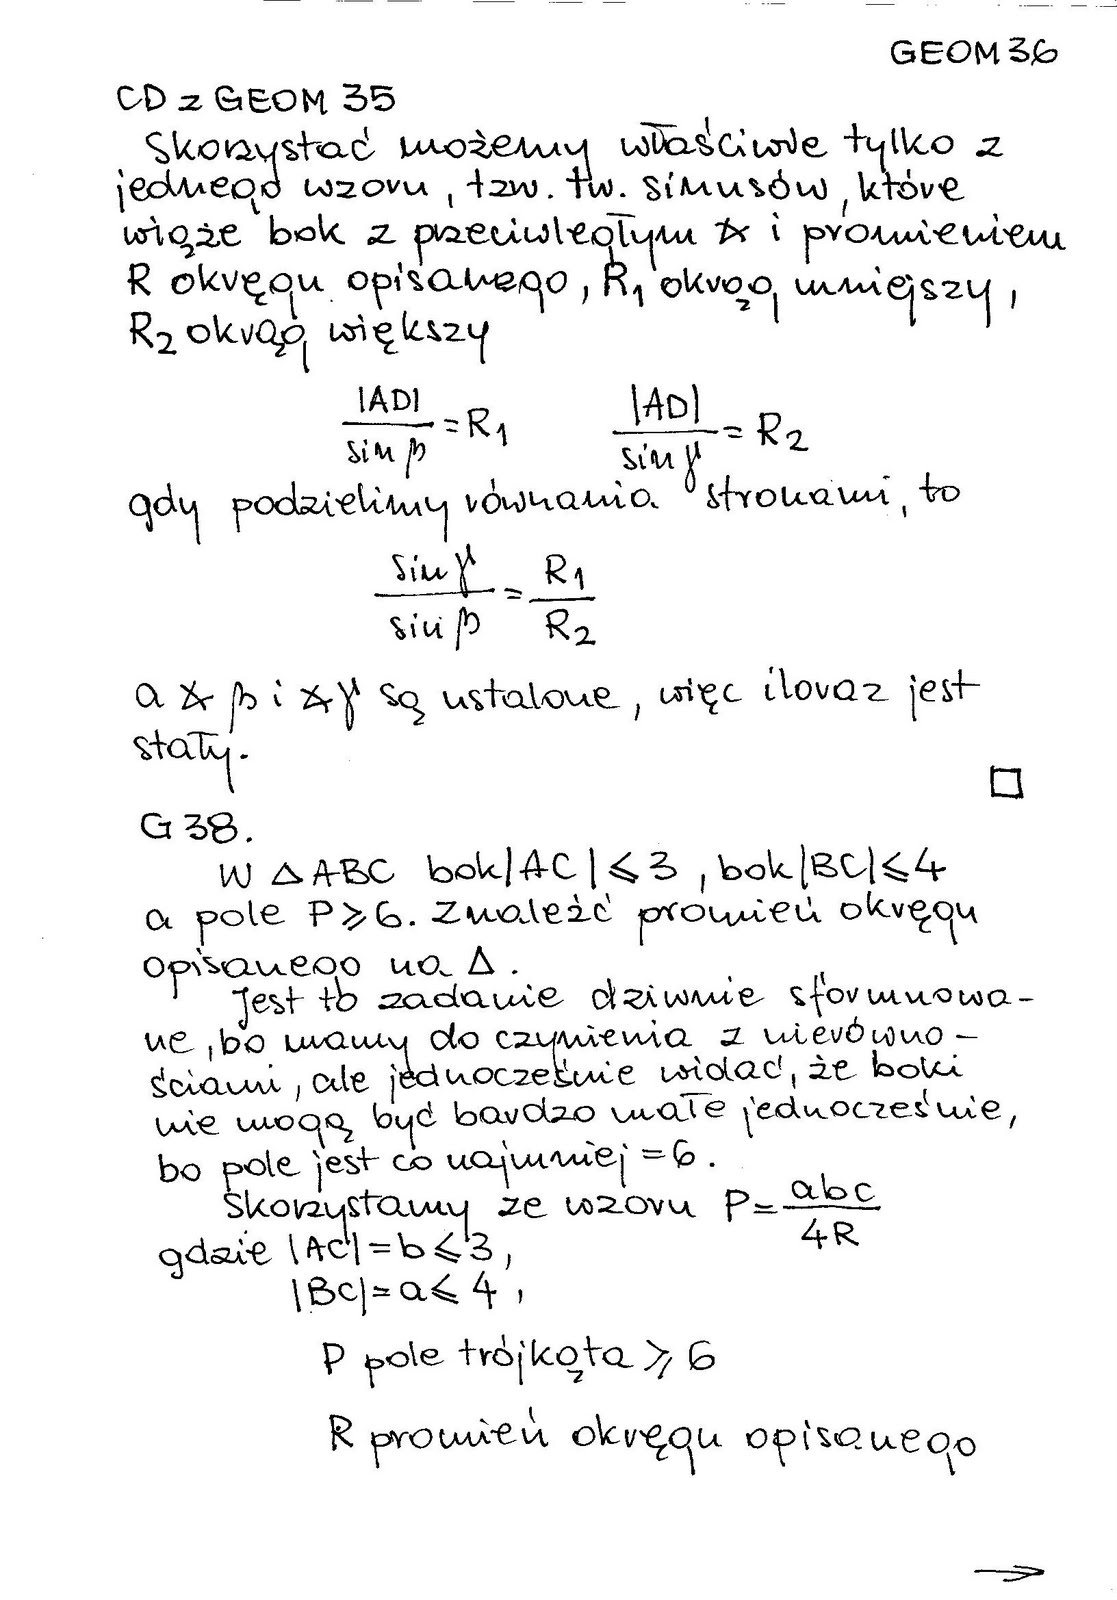 GEOM 36
CD z GEOM 35
Skorzystać możemy właściwie tylko z
jednego wzoru, tzw. tw. sinusów, które
wiąże bok z przeciwległym ∡ i promieniem
R okręgu opisanego, R₁ okrąg mniejszy,
R₂ okrąg większy
|AD|/sin β = R₁    |AD|/sin γ = R₂
gdy podzielimy równania stronami, to
sin γ/sin β = R₁/R₂
a ∡ β i ∡ γ są ustalone, więc iloraz jest
stały.
□
G 38.
W △ ABC bok |AC| ⩽ 3, bok |BC| ⩽ 4
a pole P ⩾ 6. Znaleźć promień okręgu
opisanego na △.
Jest to zadanie dziwnie sformuowa-
ne, bo mamy do czynienia z nierówno-
ściami, ale jednocześnie widać, że boki
nie mogą być bardzo małe jednocześnie,
bo pole jest co najmniej = 6.
Skorzystamy ze wzoru P = abc/4R
gdzie |AC| = b ⩽ 3,
|BC| = a ⩽ 4,
P pole trójkąta ⩾ 6
R promień okręgu opisanego
→